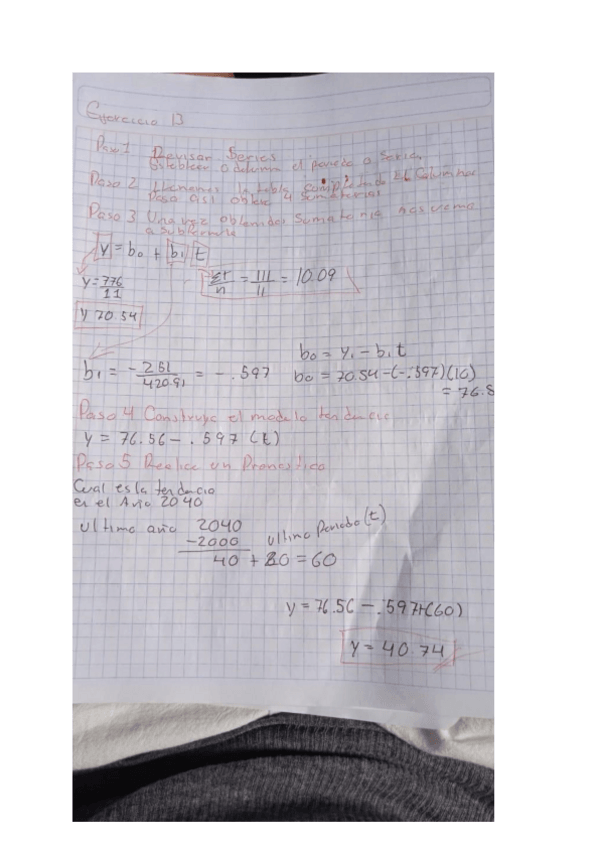 Ejercicio 13
Paso 1 Revisar Series
establecer o determ el periodo o Series
Paso 2 llenamos la tabla completando las Columnas
para asi obtene 4 sumatorias
Paso 3 Una vez obtenidas Sumatoria nos vamos
a
y = b₀ + b₁ t
y = 776/11
Σt/n = 111/11 = 10.09
y 70.54
b₀ = y₁ - b₁t
b₁ = -251/420.91 = -.597
b₀ = 70.54-(-.597)(10)
= 76.5
Paso 4 Construya el modelo tendencia
y = 76.56 - .597 (t)
Paso 5 Realice un Pronostico
Cual es la tendencia
en el Año 2040
Ultimo año 2040
-2000
Ultimo Periodo (t)
40 + 20 = 60
y = 76.56 - .597+(60)
y = 40.74